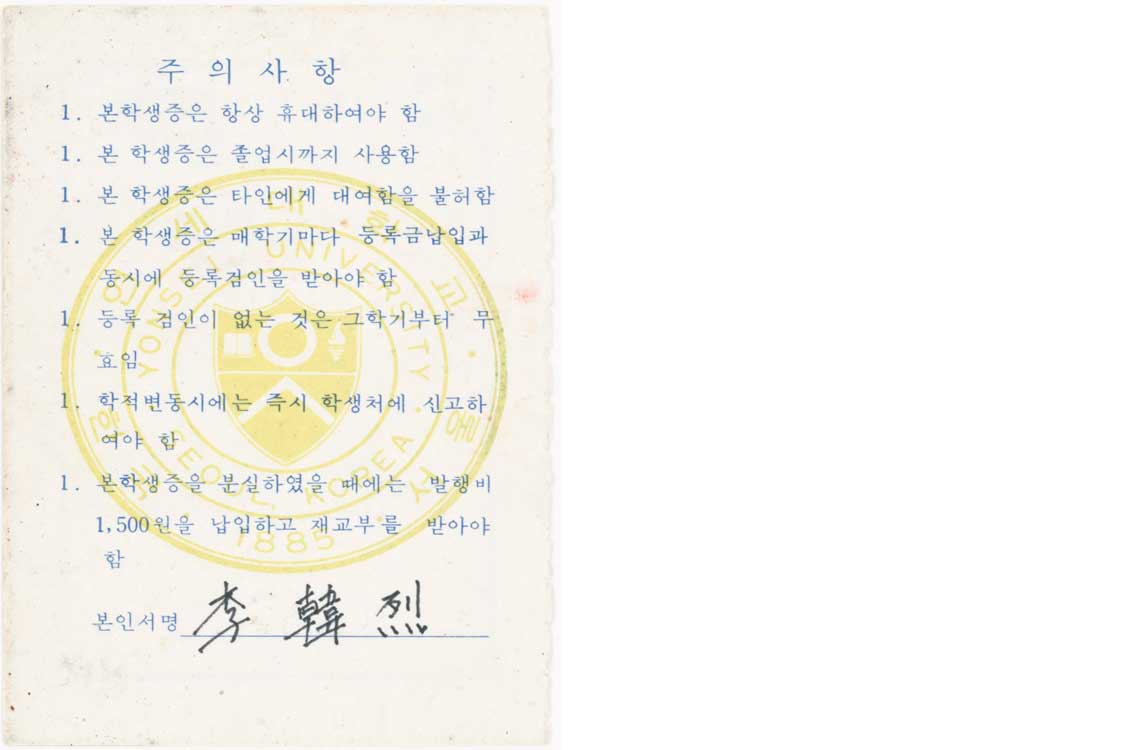 주의사항
1. 본학생증은 항상 휴대하여야 함
1. 본 학생증은 졸업시까지 사용함
1. 본 학생증은 타인에게 대여함을 불허함
1. 본 학생증은 매학기마다 등록금납입과
동시에 등록검인을 받아야 함
1. 등록 검인이 없는 것은 그학기부터 무
효임
1. 학적변동시에는 즉시 학생처에 신고하
여야 함
1. 본학생증을 분실하였을 때에는 발행비
1,500원을 납입하고 재교부를 받아야
함
본인서명 李韓烈
연세대학교
YONSEI UNIVERSITY
SEOUL, KOREA
1885